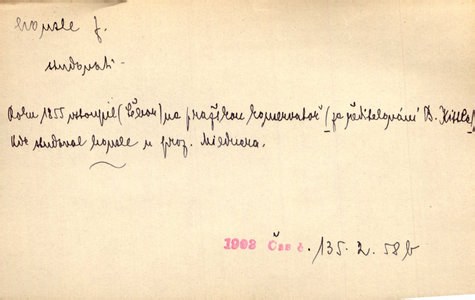 housle f.
studovati.
Roku 1855 vstoupil (Lšbor) na pražskou konservatoř (za ředitelování B. Kittla)
kde studoval housle u prof. Mildnera.
1903 Čas č. 135. 2. 58b